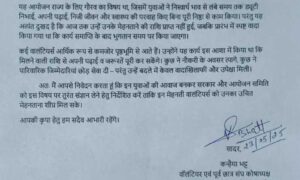 यह आयोजन राज्य के लिए गौरव का विषय था, जिसमें युवाओं ने निस्वार्थ भाव से लंबे समय तक ड्यूटी
निभाई, अपनी पढ़ाई, निजी जीवन और स्वास्थ्य की परवाह किए बिना पूरी निष्ठा से काम किया। परंतु यह
अत्यंत दुखद है कि आज तक उन्हें उनके मेहनताने की राशि प्राप्त नहीं हुई, जबकि प्रारंभ में स्पष्ट वादा
किया गया था कि कार्य समाप्ति के बाद भुगतान समय पर किया जाएगा।
कई वालंटियर्स आर्थिक रूप से कमजोर पृष्ठभूमि से आते हैं। उन्होंने यह कार्य इस आशा में किया था कि
मिलने वाली राशि से अपनी पढ़ाई व जरूरतें पूरी कर सकेंगे। कुछ ने नौकरी के अवसर त्यागे, कुछ ने
पारिवारिक जिम्मेदारियां छोड़ सेवा दी – परंतु उन्हें बदले में केवल वादाखिलाफी और उपेक्षा मिली।
अतः आपसे निवेदन करता हूं कि इन युवाओं की आवाज बनकर सरकार और आयोजन समिति
को इस विषय पर तुरंत संज्ञान लेने हेतु निर्देशित करें ताकि इन मेहनती वालंटियर्स को उनका उचित
मेहनताना शीघ्र मिल सके।
आपकी कृपा हेतु हम सदैव आभारी रहेंगे।
सादर,
कन्हैया भट्ट
वॉलंटियर एवं पूर्व छात्र संघ कोषाध्यक्ष